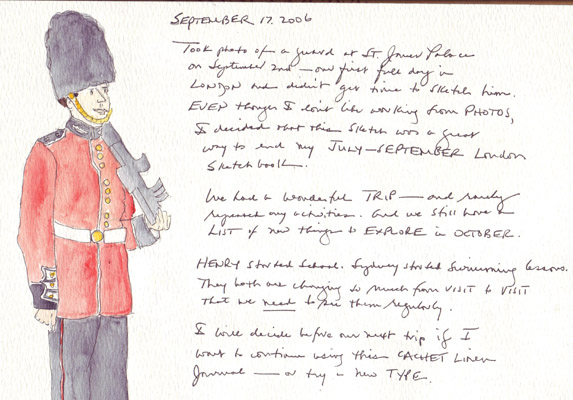 SEPTEMBER 17. 2006
Took photo of a guard at St. James Palace
on September 2nd — our first full day in
LONDON and didn't get time to sketch him.
EVEN though I don't like working from PHOTOS,
I decided that this sketch was a great
way to end my JULY–SEPTEMBER London
Sketchbook.
We had a wonderful TRIP — and rarely
repeated any activities. And we still have a
LIST of new things to EXPLORE in OCTOBER.
HENRY started School. Sydney started Swimming lessons.
They both are changing so much from VISIT to VISIT
that we need to see them regularly.
I will decide before our next trip if I
want to continue using this CACHET Linen
Journal — or try a new TYPE.